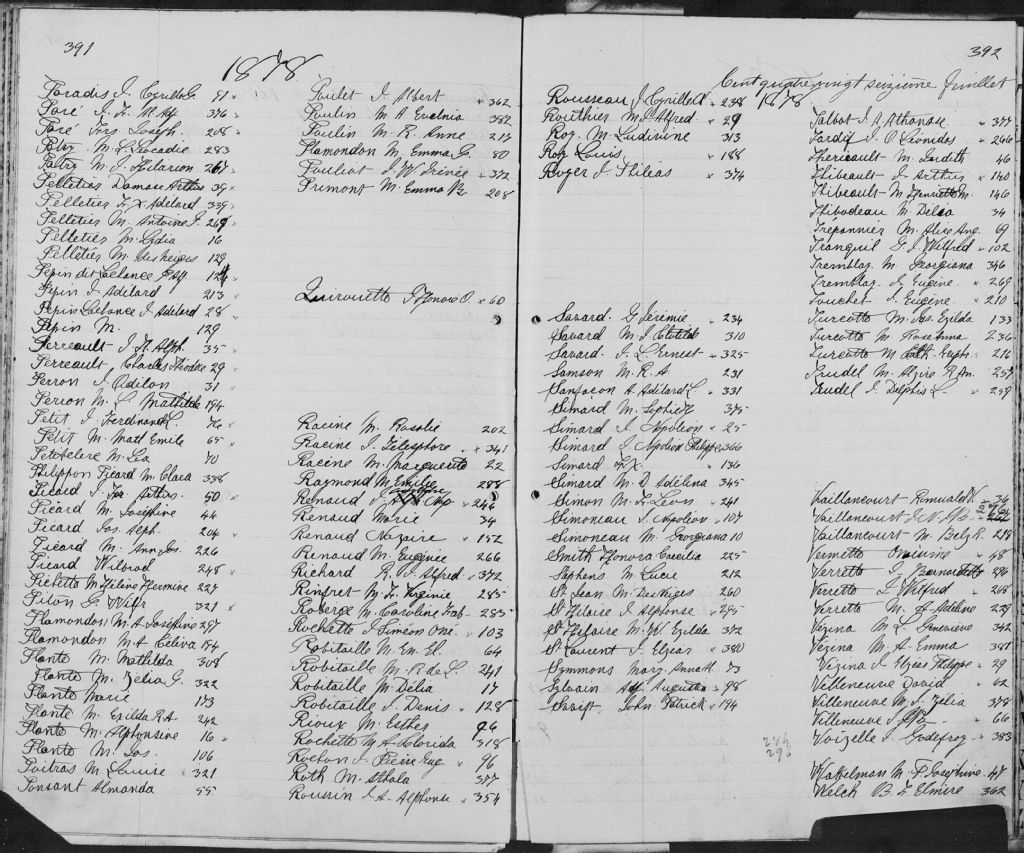 391
1878
Paradis J. Cyrille G. 91
Paré J. F. M. Alf. 376
Paré Frs Joseph 208
Patry M. L. Léocadie 283
Patry M. J. Hilarion 267
Pelletier Damase Arthur 39
Pelletier F. X. Adélard 339
Pelletier M. Antoine J. 269
Pelletier M. Lydia 16
Pelletier M. 129
Pepin dit Lachance 124
Pepin J. Adélard 213
Pepin Lachance J. Adélard 28
Pepin M. 129
Perreault J. A. Alph. 35
Perreault, Charles 29
Perron J. Odilon 31
Perron M. L. Mathilde 194
Petit J. Ferdinand L. 76
Petit M. Matt Emile 65
M. Lea 70
Philippon Picard M. Clara 338
Picard J. Frs Arthur 50
Picard M. Joséphine 44
Picard Jos. Alph. 204
Picard M. Ann Jos. 226
Picard Wilfrod 248
Pichette M. Hélène Hermine 227
Piton G. Wilf. 321
Plamondon M. A. Joséphine 297
Plamondon M. A. Célina 194
Plante M. Mathilda 308
Plante M. Zélia G. 322
Plante Marie 173
Plante M. Exilda R. A. 242
Plante M. Alphonsine 16
Plante M. Jos. 106
Poitras M. Louise 321
Ponsant Almanda 55
Poulet J. Albert 362
Poulin M. A. Evelina 382
Poulin M. R. Anne 217
Plamondon M. Emma G. 80
Pouliot J. W. Irénée 372
Primont M. Emma 208
Quirouette J. Honoré O. 60
Racine M. Rosalie 202
Racine J. Télesphore 341
Racine M. Marguerite 22
Raymond M. Emilie 288
Renaud J. 246
Renaud Marie 34
Renaud Nazaire 152
Renaud M. Eugénie 266
Richard R. J. Alfred 372
Rinfret M. L. Virginie 285
Roberge M. Caroline 285
Rochette J. Siméon One. 103
Robitaille M. Em. El. 64
Robitaille M. R. de L. 241
Robitaille M. Délia 17
Robitaille J. Denis 128
Rioux M. Esther 26
Rochette M. A. Florida 318
Rocton J. Pierre Eug. 96
Roth M. Athala 377
Roussin J. A. Alphonse 354
392
Cent quatre vingt seizième feuillet
1878
Rousseau J. Cyrille N. 238
Routhier M. J. Alfred 29
Roy. M. Ludivine 313
Roy Louis 188
Roger J. Philéas 374
Savard. G. Jérémie 234
Savard M. J. Clotilde 310
Savard. J. L. Ernest 325
Samson M. R. A. 231
Sanfacon A. Adélard L. 331
Simard M. Sophie 375
Simard J. Napoléon 25
Simard J. Napoléon Philippe 366
Simard F. X. 136
Simard M. D. Adélina 345
Simon M. L. Levis 241
Simoneau J. Napoléon 107
Simoneau M. Georgiana 10
Smith Honora Cecilia 225
Stephens M. Lucie 212
St Jean M. Desneiges 260
St Hilaire J. Alphonse 295
St Hilaire M. W. Exilda 372
St Laurent J. Elzear 380
Symmons Marg. Anna H. 73
Sylvain Alf. Auguste 98
Swift John Patrick 194
286
296
Talbot J. A. Athanase 377
Tardif J. O. Léonidas 266
Theriault M. Judith 46
Thibeault J. Arthur 140
Thibeault M. Henriette M. 146
Thibodeau M. Délia 34
Trépannier M. Alice Ang. 69
Tranquil G. J. Wilfred 102
Tremblay. M. Georgiana 346
Tremblay. J. Eugène 269
Touchet J. Eugène 210
Turcotte M. Jos. Exilda 133
Turcotte M. Roseanna 236
Turcotte M. Cath. Euph. 216
Trudel M. Alzire R. An. 257
Trudel J. Delphis L. 259
Vaillancourt Romuald V. 36
Vaillancourt J. N. 264
Vaillancourt M. 218
Vermette Onésime 48
Verrette J. Bernardette 296
Verrette J. Wilfred 208
Verrette M. A. Adeline 229
Vézina M. L. Geneviève 342
Vézina M. A. Emma 381
Vézina J. Elzéar Philippe 29
Villeneuve David 62
Villeneuve M. J. Zélia 378
Villeneuve J. 66
Voizelle J. Godefroy 383
Wakelman M. P. Joséphine 47
Welch B. L. Elmire 362